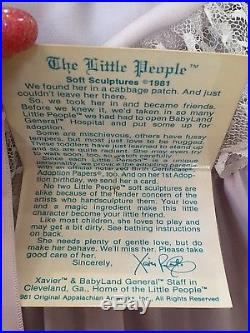 The Little People™
Soft Sculptures ©1981
We found her in a cabbage patch. And just
couldn't leave her there.
So, we took her in and became friends.
Before we knew it, we'd taken in so many
Little People™ we had had to open BabyLand
General™ Hospital and put some up for
adoption.
Some are mischievous, others have funny
tempers, but most just love to be hugged.
These toddlers have learned to stand up so
Since each Little Person™ is a unique
Adoption Papers™, too. And on her 1st adop-
tion birthday, we send her a card.
No two Little People™ soft sculptures are
alike because of the tender concern of the
artists who handsculpture them. Your love
and a magic ingredient make this little
character become your little friend.
Like most children, she loves to play and
may get dirty. See bathing instructions
enclosed.
She needs plenty of gentle love, but do
make her behave. We'll miss her. Please take
good care of her.
Sincerely,
Xavier™ & BabyLand General™ Staff in
Cleveland, Ga., Home of the Little People™
981 Original Appalachian Inc., All Rights Reserved